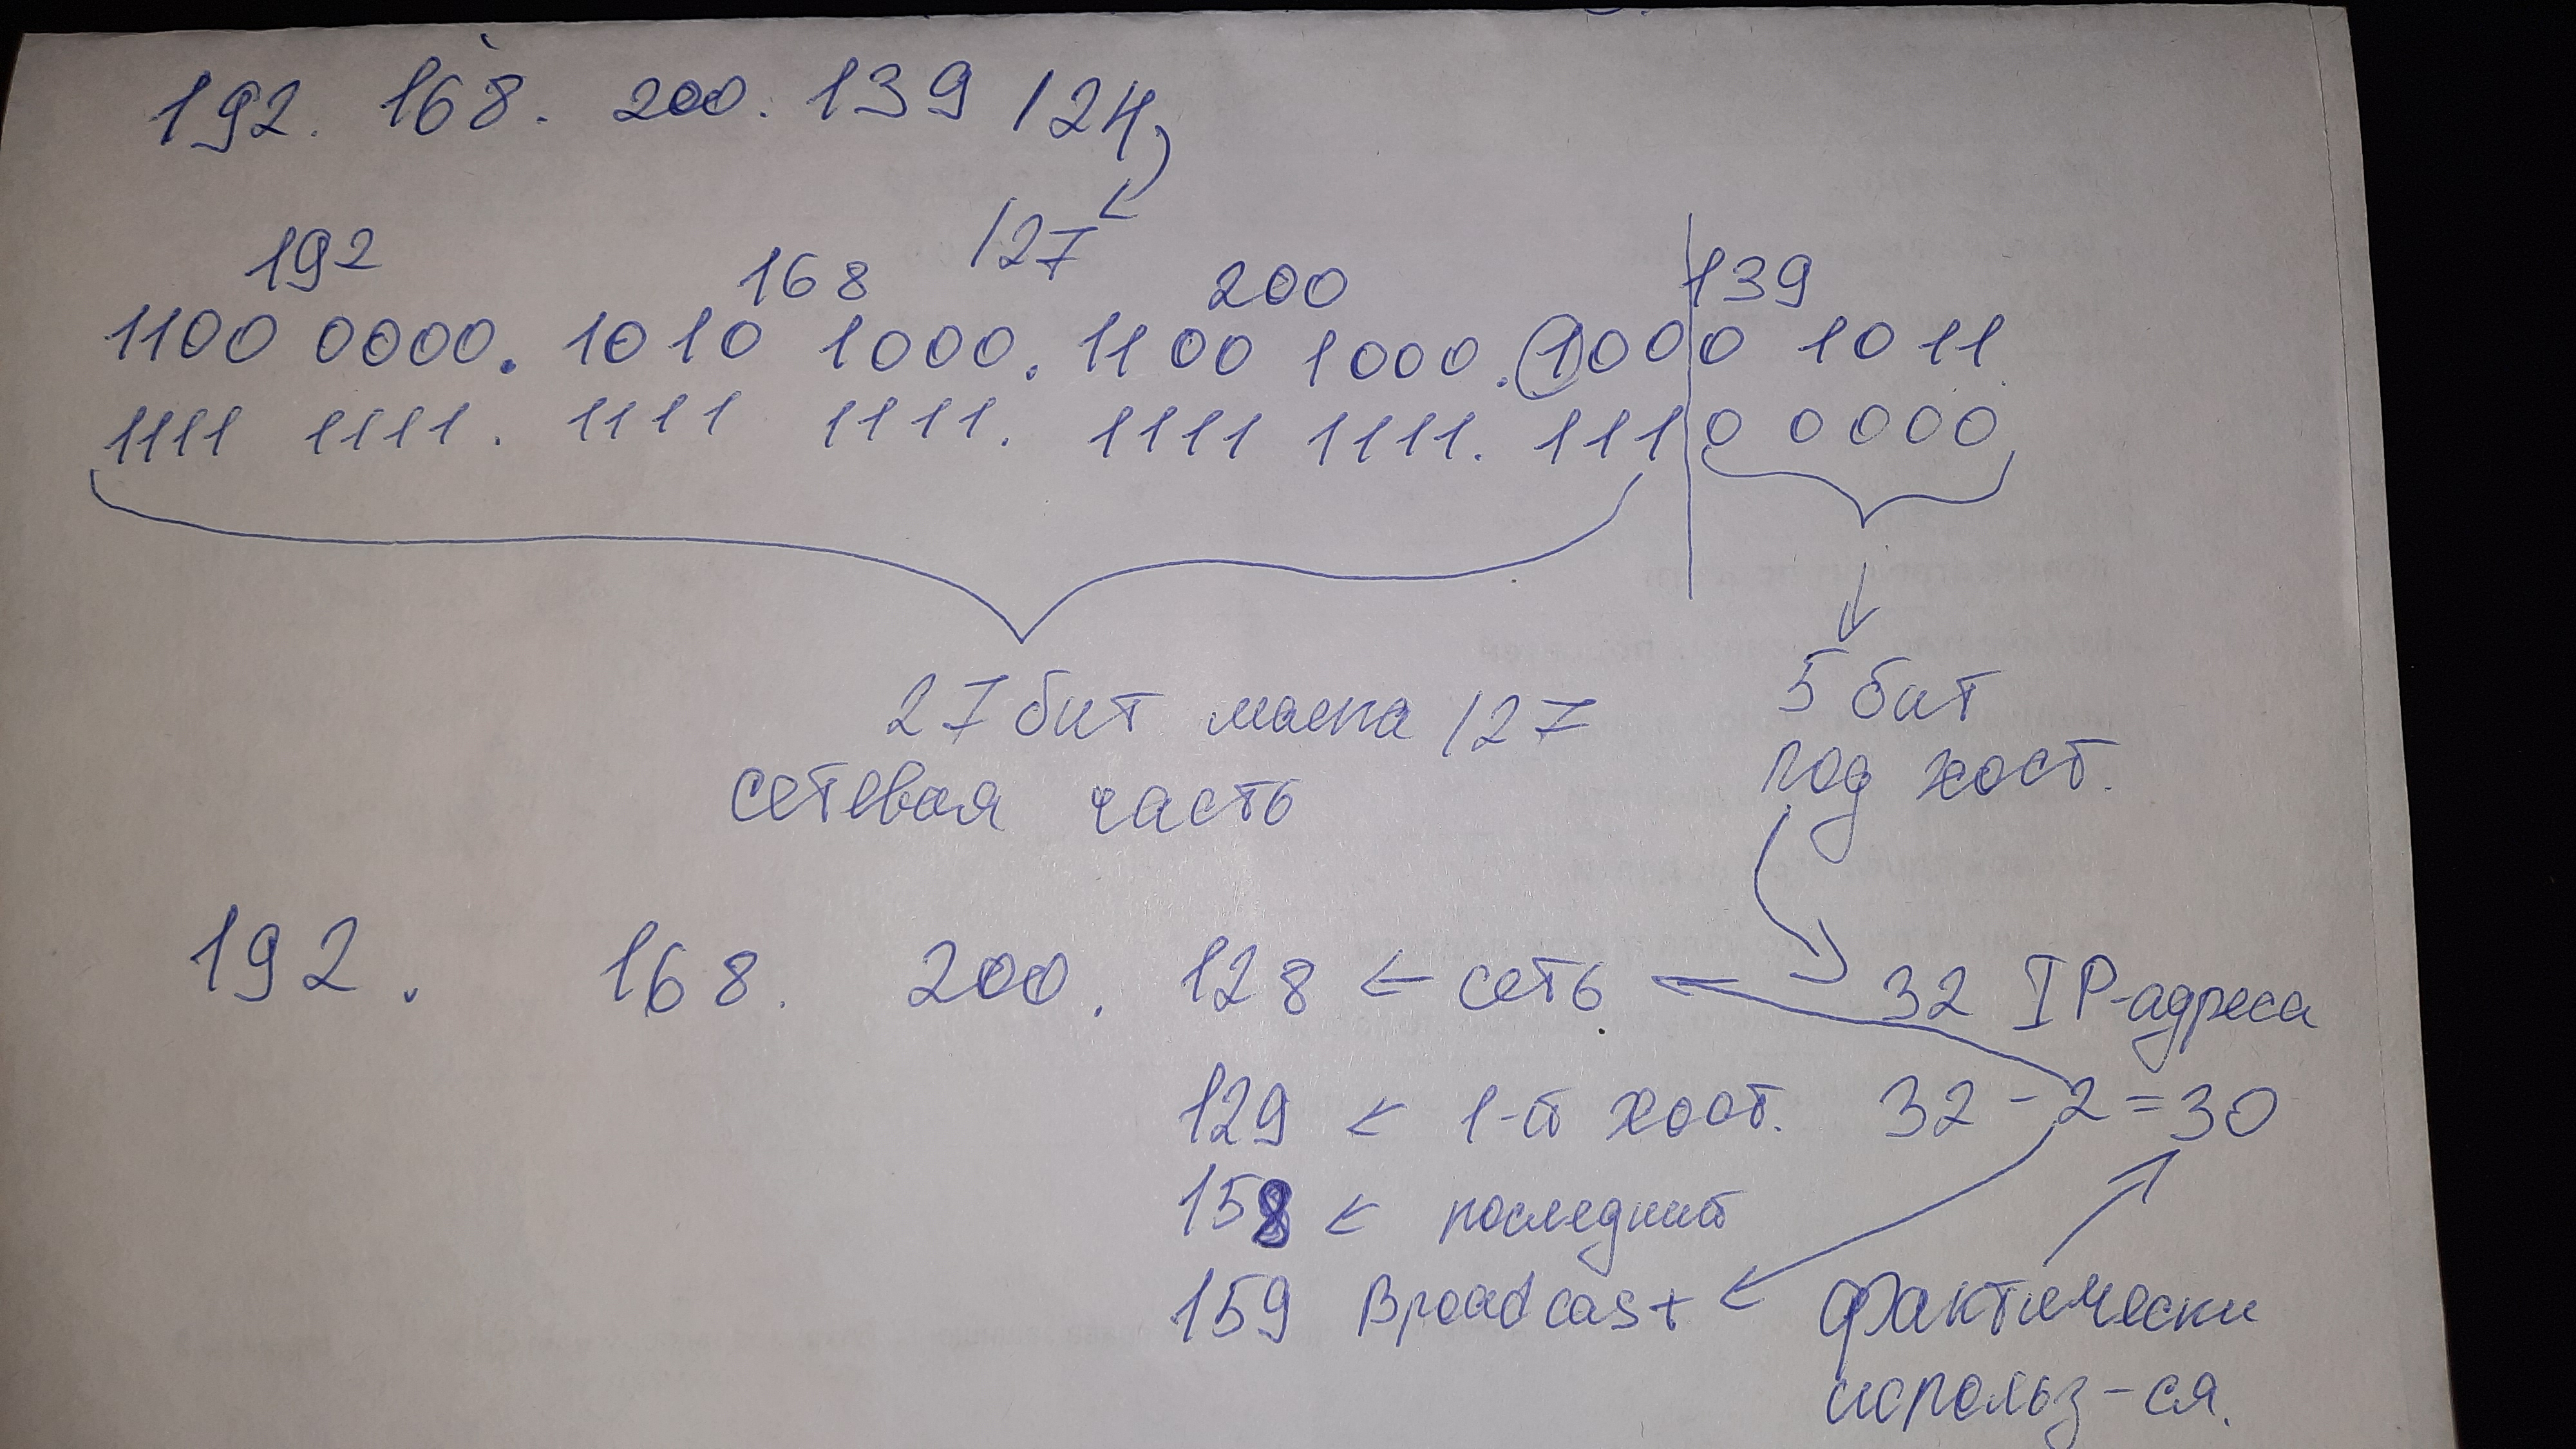 192. 168. 200. 139 /24
/27
192 168 200 139
1100 0000. 1010 1000. 1100 1000. 1000 1011
1111 1111. 1111 1111. 1111 1111. 1110 0000
27 бит маска /27
сетевая часть
5 бит
под хост.
192. 168. 200. 128 ← сеть ← 32 IP-адреса
129 ← 1-й хост. 32 - 2 = 30
158 ← последний
159 Broadcast ← фактически
использ-ся.